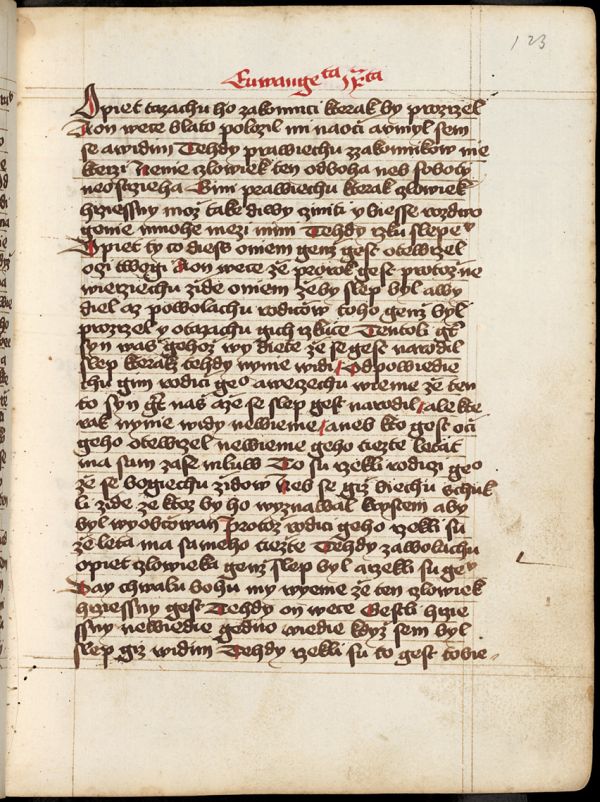 123
Opiet tazachu ho zakonnici kterak by prozrzel
A on wece blato polozil mi na oči a vmyl sem
se a widim Tehdy prawiechu z zakonnikow nie
kterzi Nenie człowiek ten od boha neb soboty
neostrzieha Gini prawiechu kterak człowiek
hrziessny moż take diwy cziniti y biesse rozdwo
genie mnohe mezi nimi Tehdy rzku slepe
Opiet ty co dieś o niem genż gest otewrzel
oczi twogi A on wece że prorok gest protoż ne
wierziechu zide o niem że by slep był a wy
diel aż powolachu rodiczów toho genż był
prozrzel y otazachu gich rzkuce Tentoli gt
syn waś gehoż wy diete że se gest narodil
slep kterakż tehdy nynie widi Odpowiedie
chu gim rodici geo a wecechu wieme że ten
to syn gt naś a że se slep gest narodil ale kte
rak nynie widy newieme aneb kto gest oči
geho otewrzel newieme geho tiezte letat
ma sam za se mluw To su rzekli rodiczi geo
że se bogiechu żidow Neb se giż biechu schuk
li żide że ktoż by ho wyznawal krystem aby
byl wyobcowan protoż rodici geho rzekli su
że leta ma sameho tieżte Tehdy zawolachu
opiet człowieka genż slep był a rzekli su ge
Day chwalu bohu my wyeme że ten człowiek
hrziessny gest Tehdy on wece Gestli hrzie
ssny newiedie gedno wiedie kdyż sem byl
slep giż widim Tehdy rzekli su to gest tobie